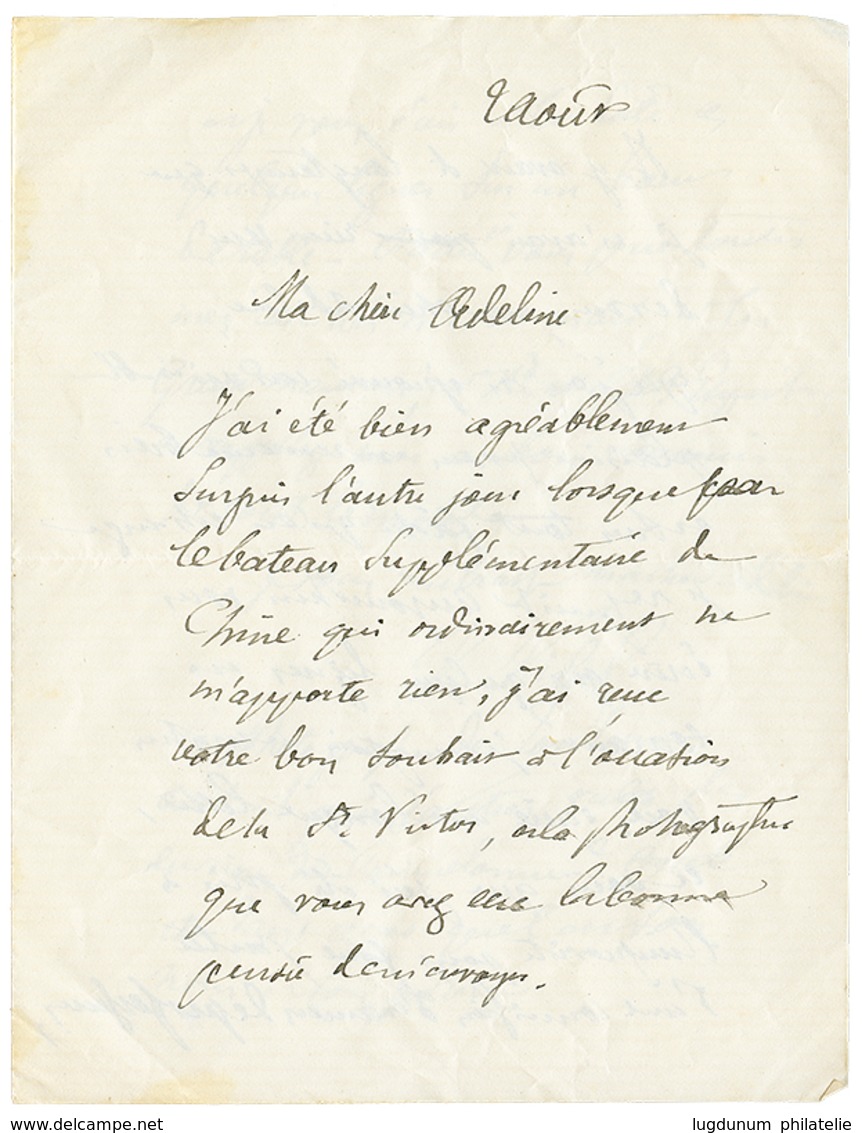 2 août
Ma chère Adeline
J'ai été bien agréablement
surpris l'autre jour lorsque par
le bateau supplémentaire de
Chine qui ordinairement ne
m'apporte rien, j'ai reçu
votre bon souhait à l'occasion
de la St Victor, et la photographie
que vous avez eue la bonne
pensée de m'envoyer.
www.delcampe.net
lugdunum philatelie